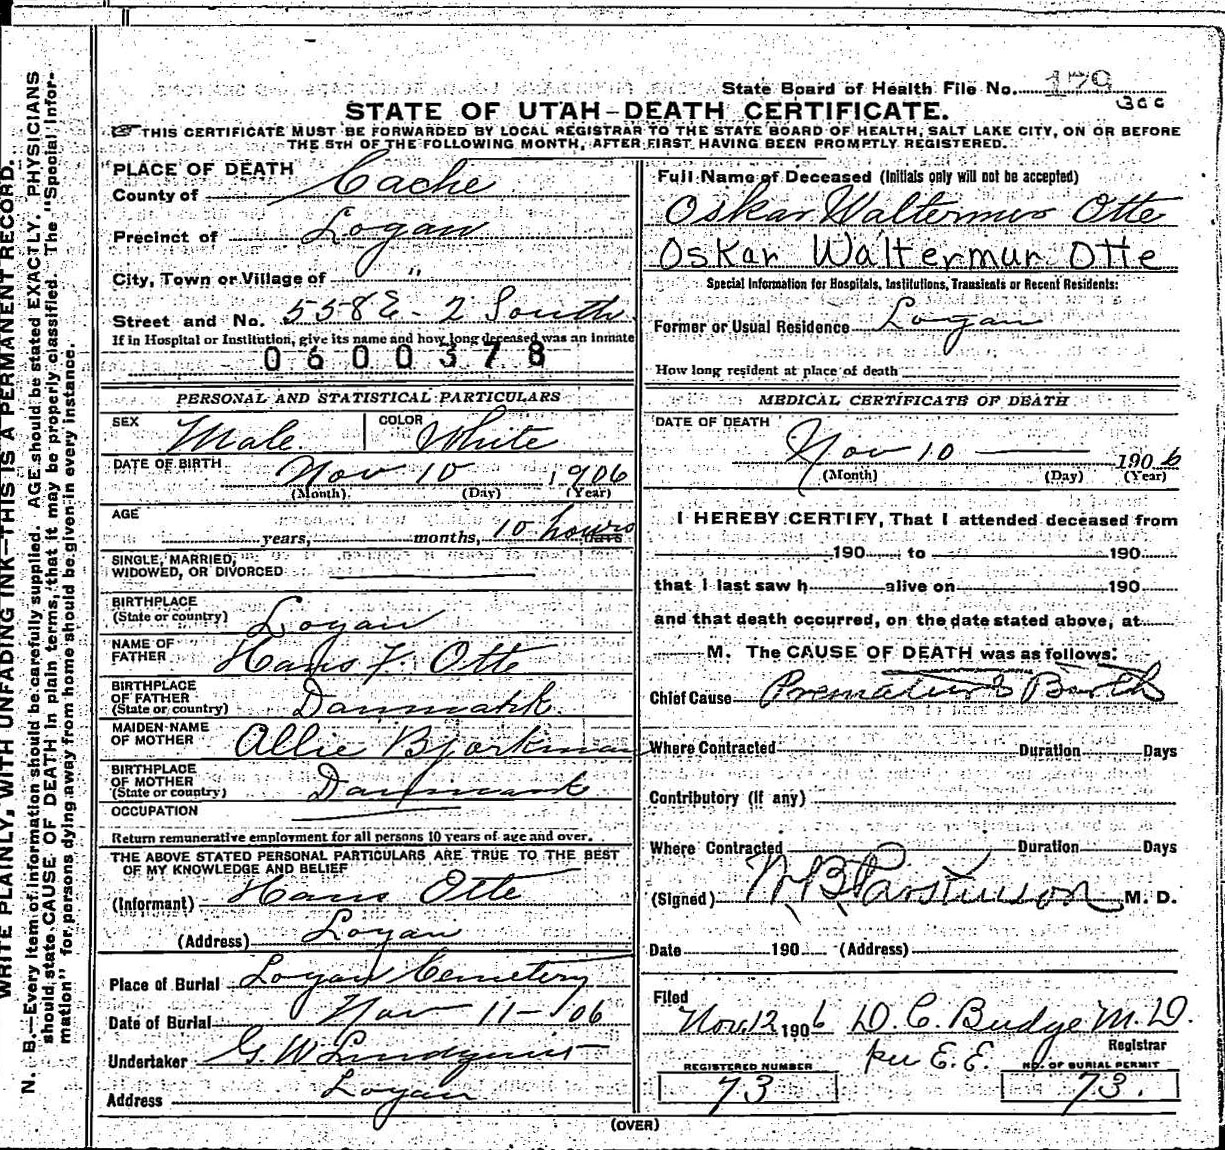 State Board of Health File No. 179
300
STATE OF UTAH–DEATH CERTIFICATE.
☞ THIS CERTIFICATE MUST BE FORWARDED BY LOCAL REGISTRAR TO THE STATE BOARD OF HEALTH, SALT LAKE CITY, ON OR BEFORE
THE 5TH OF THE FOLLOWING MONTH, AFTER FIRST HAVING BEEN PROMPTLY REGISTERED.
PLACE OF DEATH
County of Cache
Precinct of Logan
City, Town or Village of "
Street and No. 558 E - 2 South
If in Hospital or Institution, give its name and how long deceased was an inmate
0600378
PERSONAL AND STATISTICAL PARTICULARS
SEX Male COLOR White
DATE OF BIRTH Nov 10 1906
(Month) (Day) (Year)
AGE
years, months, 10 hours days
SINGLE, MARRIED,
WIDOWED, OR DIVORCED
BIRTHPLACE
(State or country) Logan
NAME OF
FATHER Hans F. Otte
BIRTHPLACE
OF FATHER
(State or country) Danmark
MAIDEN NAME
OF MOTHER Allie Bjorkman
BIRTHPLACE
OF MOTHER
(State or country) Danmark
OCCUPATION
Return remunerative employment for all persons 10 years of age and over.
THE ABOVE STATED PERSONAL PARTICULARS ARE TRUE TO THE BEST
OF MY KNOWLEDGE AND BELIEF
(Informant) Hans Otte
(Address) Logan
Place of Burial Logan Cemetery
Date of Burial Nov 11 - 06
Undertaker G. W. Lindquist
Address Logan
Full Name of Deceased (Initials only will not be accepted)
Oskar Waltermur Otte
Oskar Waltermur Otte
Special Information for Hospitals, Institutions, Transients or Recent Residents:
Former or Usual Residence Logan
How long resident at place of death
MEDICAL CERTIFICATE OF DEATH
DATE OF DEATH
Nov 10 1906
(Month) (Day) (Year)
I HEREBY CERTIFY, That I attended deceased from
190 to 190
that I last saw h alive on 190
and that death occurred, on the date stated above, at
M. The CAUSE OF DEATH was as follows:
Chief Cause Premature Birth
Where Contracted Duration Days
Contributory (if any)
Where Contracted Duration Days
(Signed) W B Parkinson M. D.
Date 190 (Address)
Filed
Nov 12 1906 D. C. Budge M. D.
Registrar
per E. E.
REGISTERED NUMBER
73
NO. OF BURIAL PERMIT
73.
(OVER)
WRITE PLAINLY, WITH UNFADING INK–THIS IS A PERMANENT RECORD.
N. B.—Every item of information should be carefully supplied. AGE should be stated EXACTLY. PHYSICIANS
should state CAUSE OF DEATH in plain terms, that it may be properly classified. The "Special Infor-
mation" for persons dying away from home should be given in every instance.